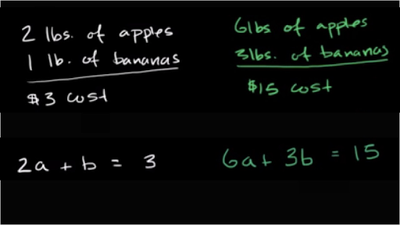 2 lbs. of apples
1 lb. of bananas
$3 cost
6lbs of apples
3lbs. of bananas
$15 cost
2a + b = 3
6a + 3b = 15